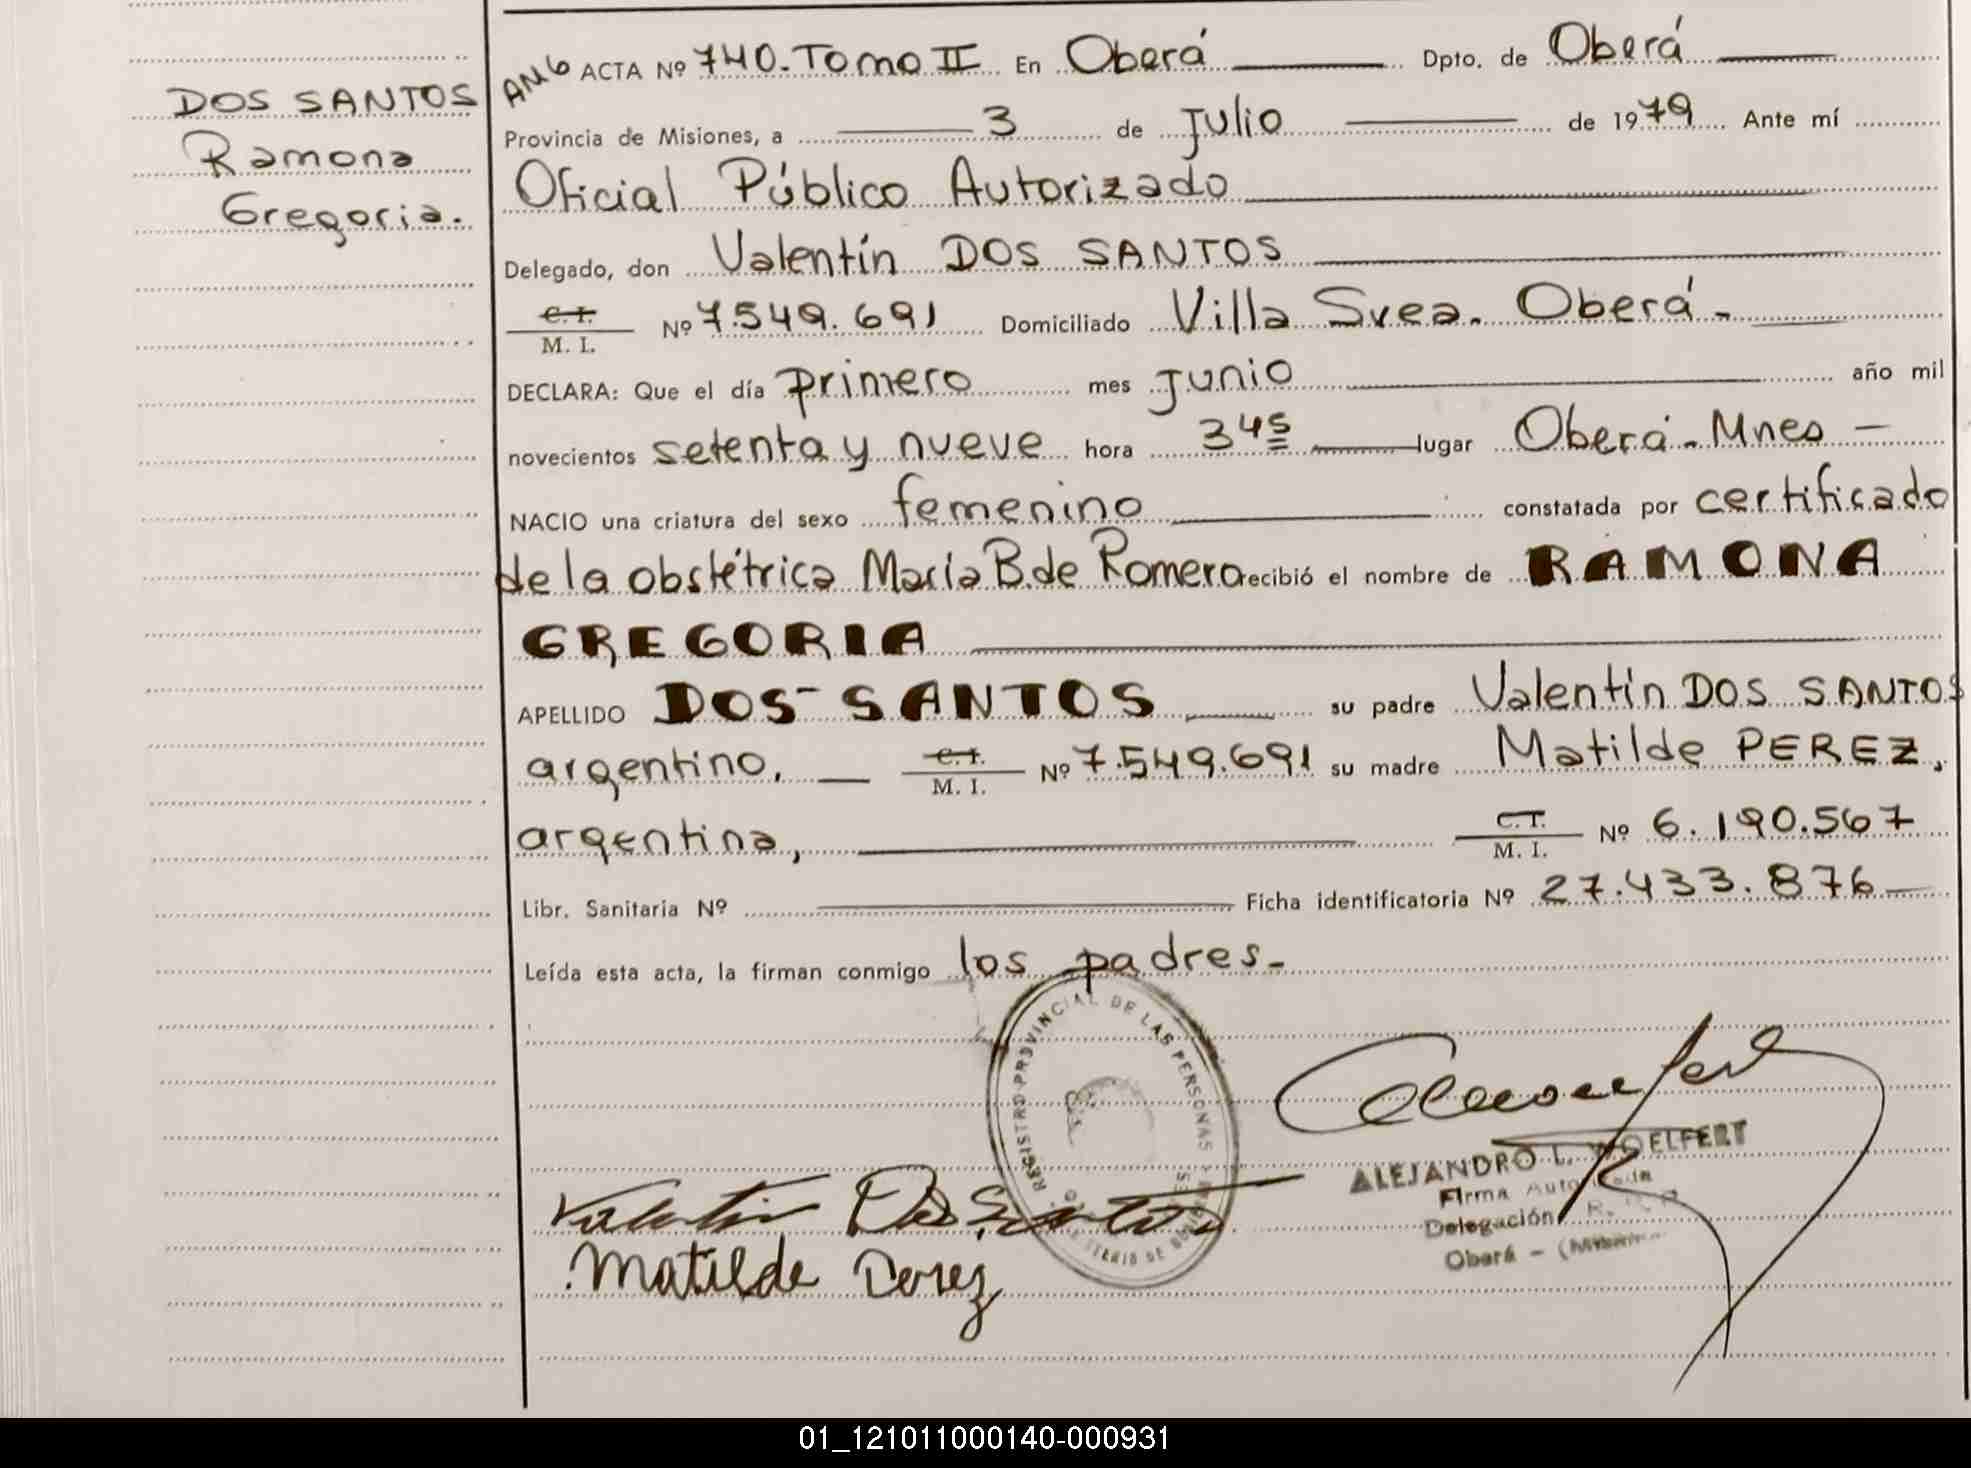 DOS SANTOS
Ramona
Gregoria.
ANG ACTA Nº 740. Tomo II En Oberá Dpto. de Oberá
Provincia de Misiones, a 3 de Julio de 1979 Ante mí
Oficial Público Autorizado
Delegado, don Valentín DOS SANTOS
C.I. / M. I. Nº 7.549.691 Domiciliado Villa Svea. Oberá.
DECLARA: Que el día primero mes Junio año mil
novecientos setenta y nueve hora 3 45 lugar Oberá. Mnes
NACIO una criatura del sexo femenino constatada por certificado
de la obstétrica María B. de Romero recibió el nombre de RAMONA
GREGORIA
APELLIDO DOS SANTOS su padre Valentín DOS SANTOS
argentino, C.I. / M. I. Nº 7.549.691 su madre Matilde PEREZ,
argentina, C.I. / M. I. Nº 6.190.567
Libr. Sanitaria Nº Ficha identificatoria Nº 27.433.876
Leída esta acta, la firman conmigo los padres.
REGISTRO PROVINCIAL DE LAS PERSONAS
ALEJANDRO L. WOELFERT
Firma
Delegación
Oberá -
Valentin Dos Santos
Matilde Perez
01_121011000140-000931